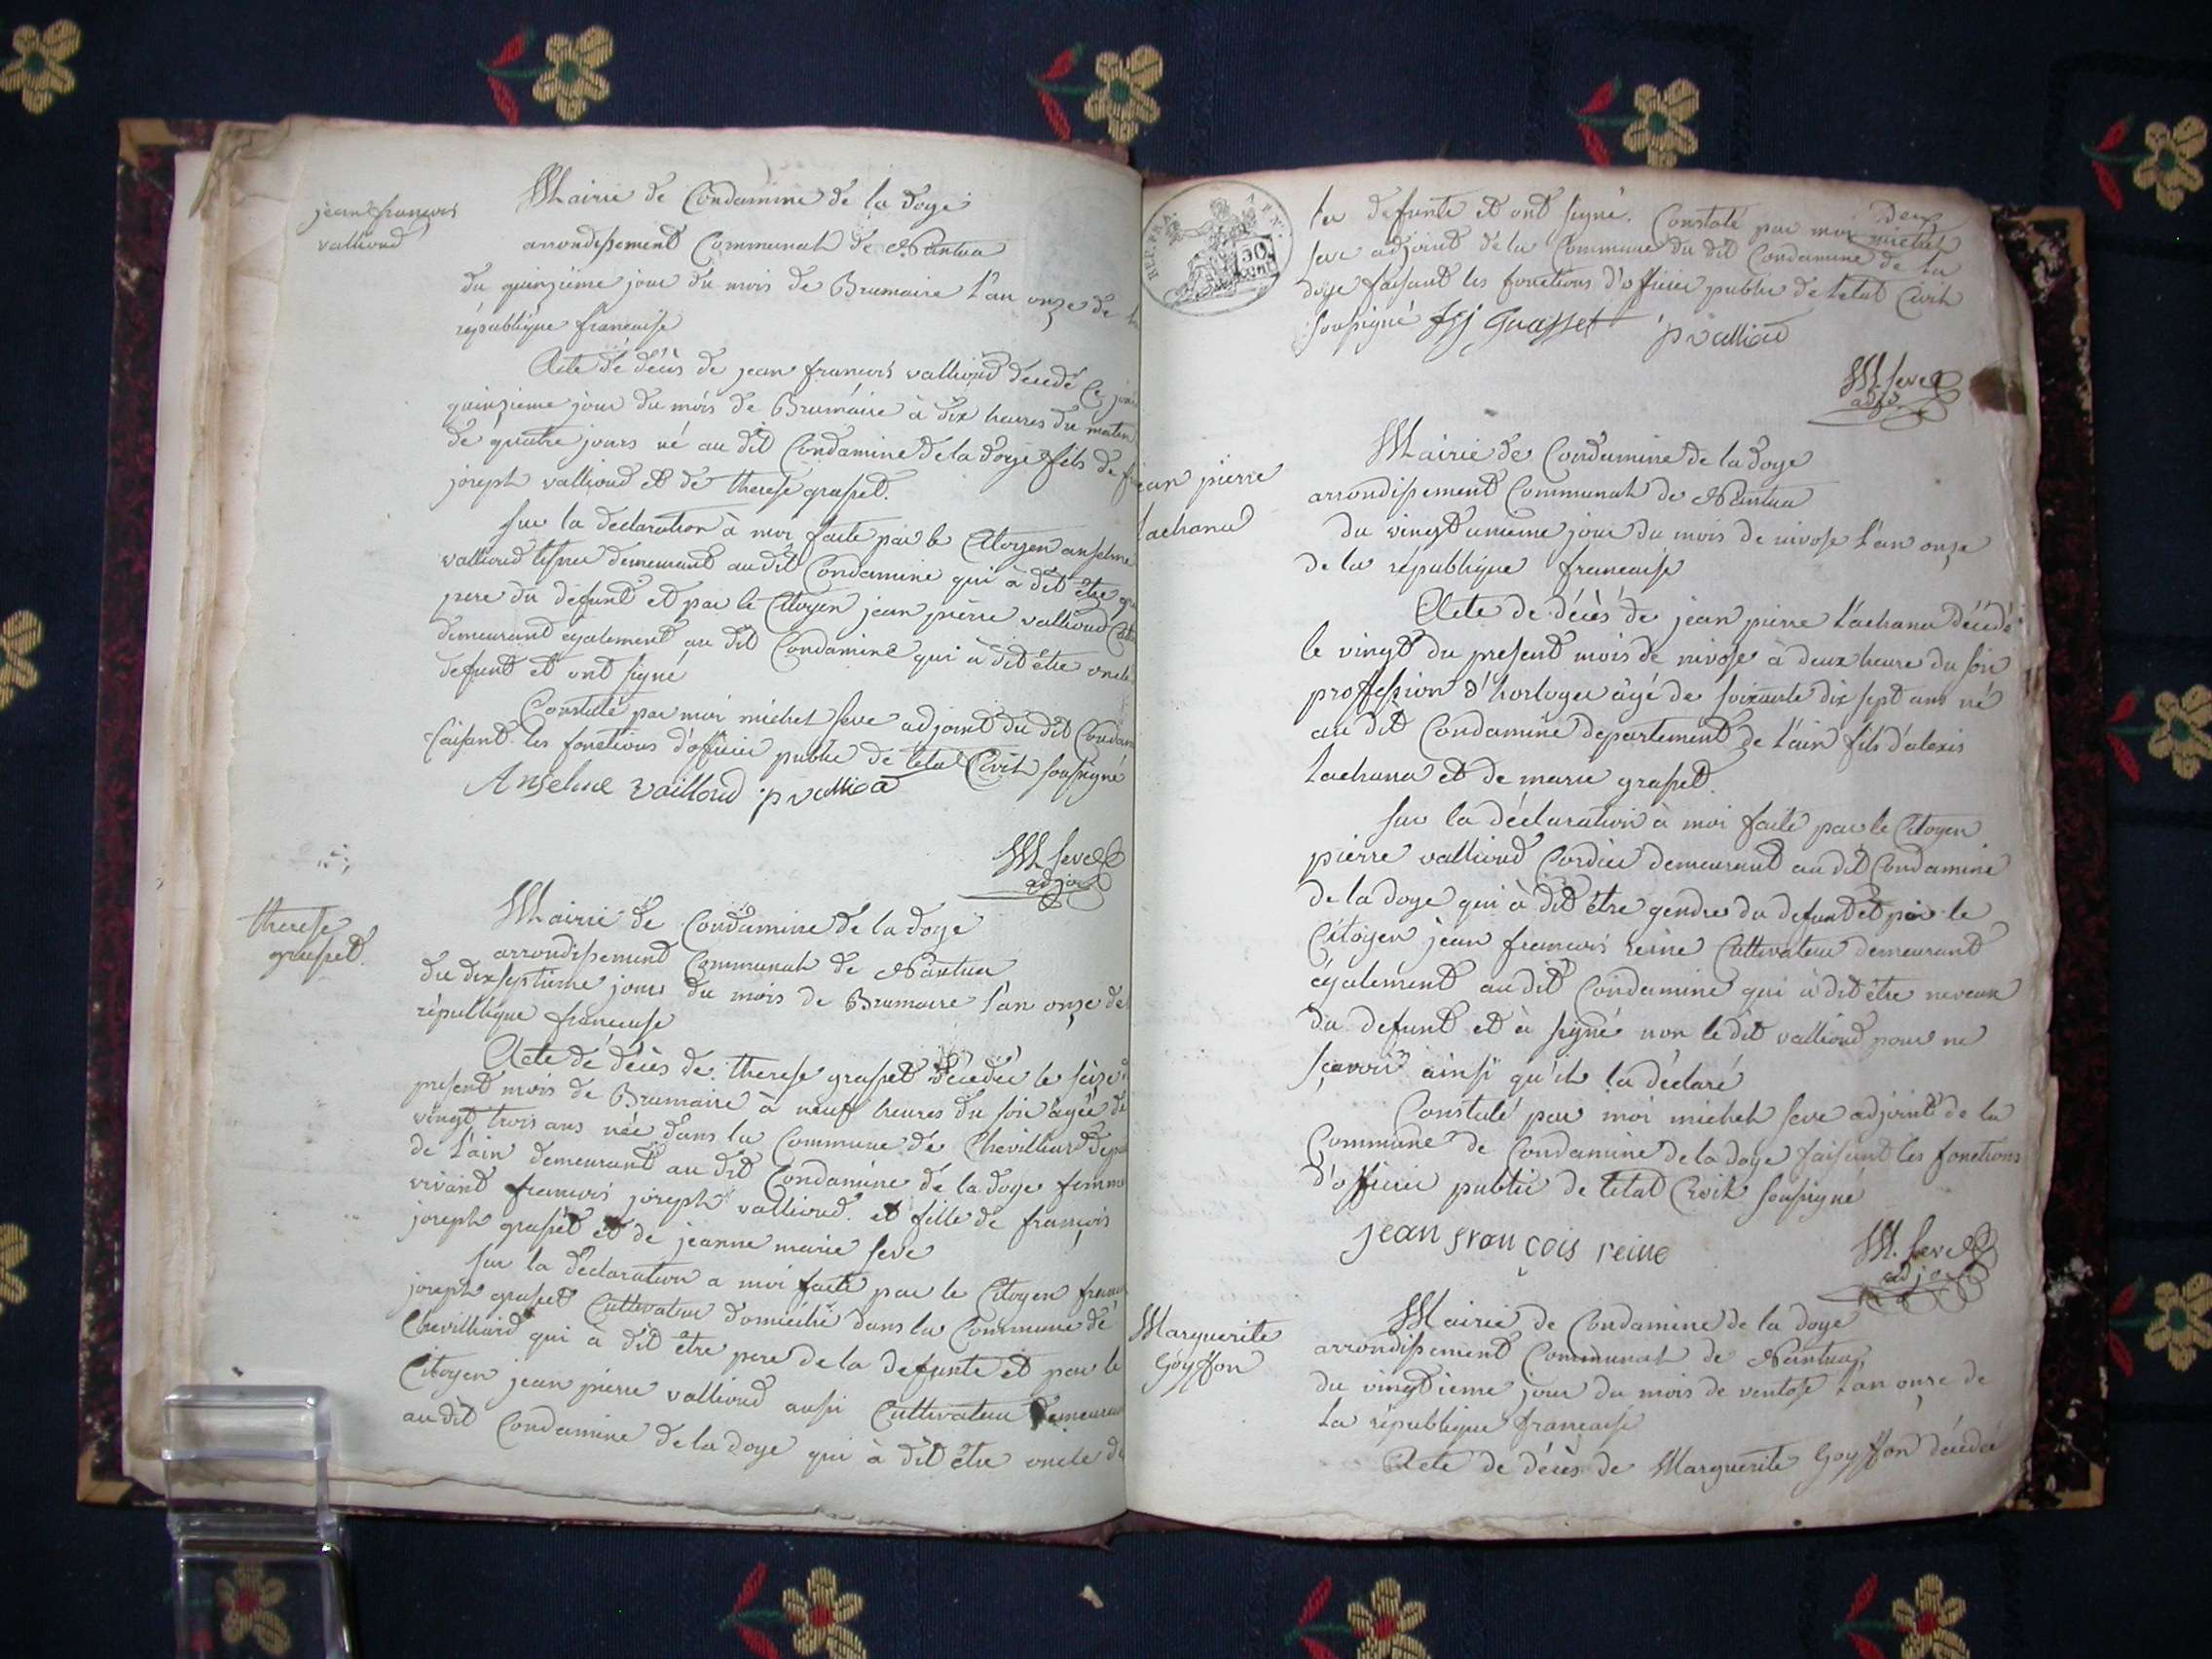 jean françois
vallioud
Mairie de Condamine de la doye
arrondissement Communal de Nantua
du quinzieme jour du mois de Brumaire l'an onze de la
république francaise
Acte de décès de jean francois vallioud décédé Ce jour
quinzieme jour du mois de Brumaire à dix heures du matin
de quatre jours né au dit Condamine de la doye fils de
joseph vallioud et de therese grasset.
sur la déclaration à moi faite par le Citoyen anselme
vallioud demeurant au dit Condamine qui à dit être
pere du défunt et par le Citoyen jean pierre vallioud
demeurant également au dit Condamine qui à dit être oncle
defunt et ont signé
Constaté par moi michel seve adjoint du dit
faisant les fonctions d'officier public de letat Civil soussigné
Anselme vailloud p valliod
M. seve
adjoint
therese
grasset.
Mairie de Condamine de la doye
arrondissement Communal de Nantua
du dixseptieme jour du mois de Brumaire l'an onze de
république francaise
Acte de décès de therese grasset décédée le seize
present mois de Brumaire à neuf heures du soir agée de
vingt trois ans née dans la Commune de Chevilliard
de L'ain demeurant au dit Condamine de la doye femme
vivant francois joseph valliord. et fille de françois
joseph grasset et de jeanne marie seve
sur la déclaration a moi faite par le Citoyen
joseph grasset Cultivateur domicilié dans la Commune de
Chevilliard qui à dit être pere de la defunte et par le
Citoyen jean pierre valliond aussi Cultivateur
au dit Condamine de la doye qui à dit être oncle de
REP. FRA.
50
cent
deux
la defunte et ont signé. Constaté par moi michel
seve adjoint de la Commune du dit Condamine de la
doye faisant les fonctions d'officier public de letat Civil
soussigné fsj Grasset p valliod
M. seve
adjt
jean pierre
Lachana
Mairie de Condamine de la doye
arrondissement Communal de Nantua
du vingt unieme jour du mois de nivose l'an onze
de la république francaise
Acte de décès de jean pierre Lachana décédé
le vingt du present mois de nivose à deux heure du soir
profession d'horloger agé de soixante dix sept ans né
au dit Condamine departement de L'ain fils d'alexis
Lachana et de marie grasset.
sur la déclaration à moi faite par le Citoyen
pierre valliond Cordier demeurant au dit Condamine
de la doye qui à dit être gendre du defunt et par le
Citoyen jean francois reine Cultivateur demeurant
également au dit Condamine qui à dit être neveux
du defunt et à signé non le dit valliond pour ne
sçavoir ainsi qu'il la déclaré
Constaté par moi michel seve adjoint de la
Commune de Condamine de la doye faisant les fonctions
d'officier public de letat Civil soussigné
jean françois reine
M. seve
adjoint
Marguerite
Goyffon
Mairie de Condamine de la doye
arrondissement Communal de Nantua,
du vingtieme jour du mois de ventose l'an onze de
la république francaise
Acte de décès de Marguerite Goyffon décédée